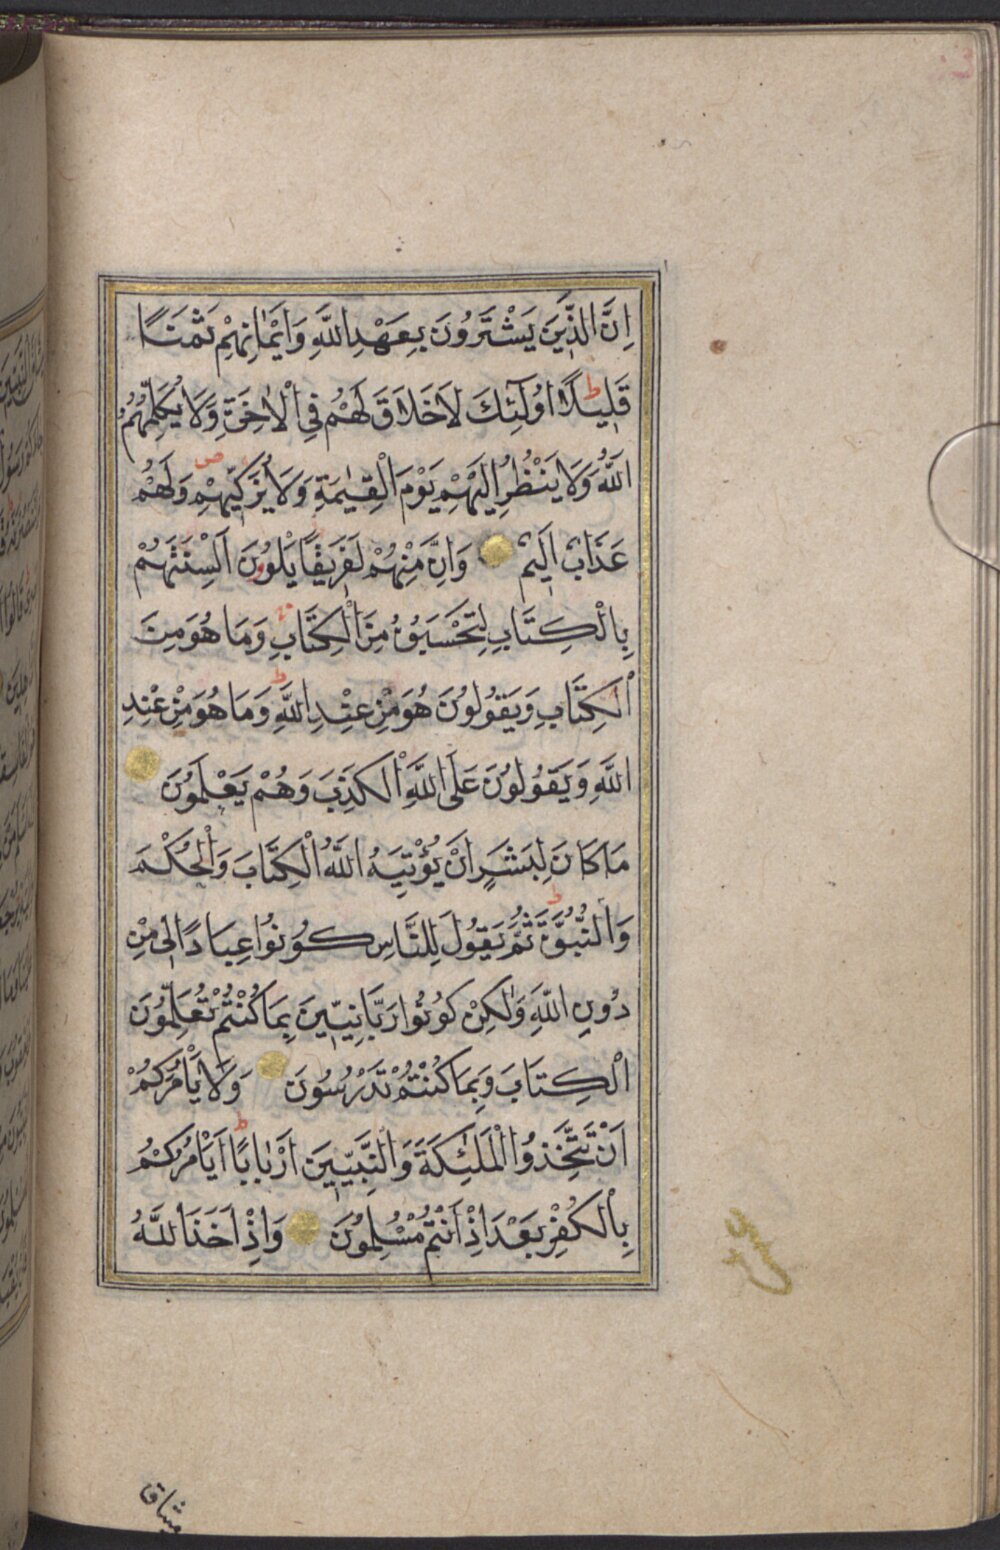 اِنَّ الَّذِينَ يَشْتَرُونَ بِعَهْدِ اللَّهِ وَاَيْمَانِهِمْ ثَمَنًا
قَلِيلًا اُولَٰئِكَ لَا خَلَاقَ لَهُمْ فِي الْاٰخِرَةِ وَلَا يُكَلِّمُهُمُ
اللَّهُ وَلَا يَنْظُرُ اِلَيْهِمْ يَوْمَ الْقِيٰمَةِ وَلَا يُزَكِّيهِمْ وَلَهُمْ
عَذَابٌ اَلِيمٌ وَاِنَّ مِنْهُمْ لَفَرِيقًا يَلْوُنَ اَلْسِنَتَهُمْ
بِالْكِتَابِ لِتَحْسَبُوهُ مِنَ الْكِتَابِ وَمَا هُوَ مِنَ
الْكِتَابِ وَيَقُولُونَ هُوَ مِنْ عِنْدِ اللَّهِ وَمَا هُوَ مِنْ عِنْدِ
اللَّهِ وَيَقُولُونَ عَلَى اللَّهِ الْكَذِبَ وَهُمْ يَعْلَمُونَ
مَا كَانَ لِبَشَرٍ اَنْ يُؤْتِيَهُ اللَّهُ الْكِتَابَ وَالْحُكْمَ
وَالنُّبُوَّةَ ثُمَّ يَقُولَ لِلنَّاسِ كُونُوا عِبَادًا لِي مِنْ
دُونِ اللَّهِ وَلٰكِنْ كُونُوا رَبَّانِيِّينَ بِمَا كُنْتُمْ تُعَلِّمُونَ
الْكِتَابَ وَبِمَا كُنْتُمْ تَدْرُسُونَ وَلَا يَأْمُرَكُمْ
اَنْ تَتَّخِذُوا الْمَلٰئِكَةَ وَالنَّبِيِّينَ اَرْبَابًا اَيَأْمُرُكُمْ
بِالْكُفْرِ بَعْدَ اِذْ اَنْتُمْ مُسْلِمُونَ وَاِذْ اَخَذَ اللَّهُ
ميثاق